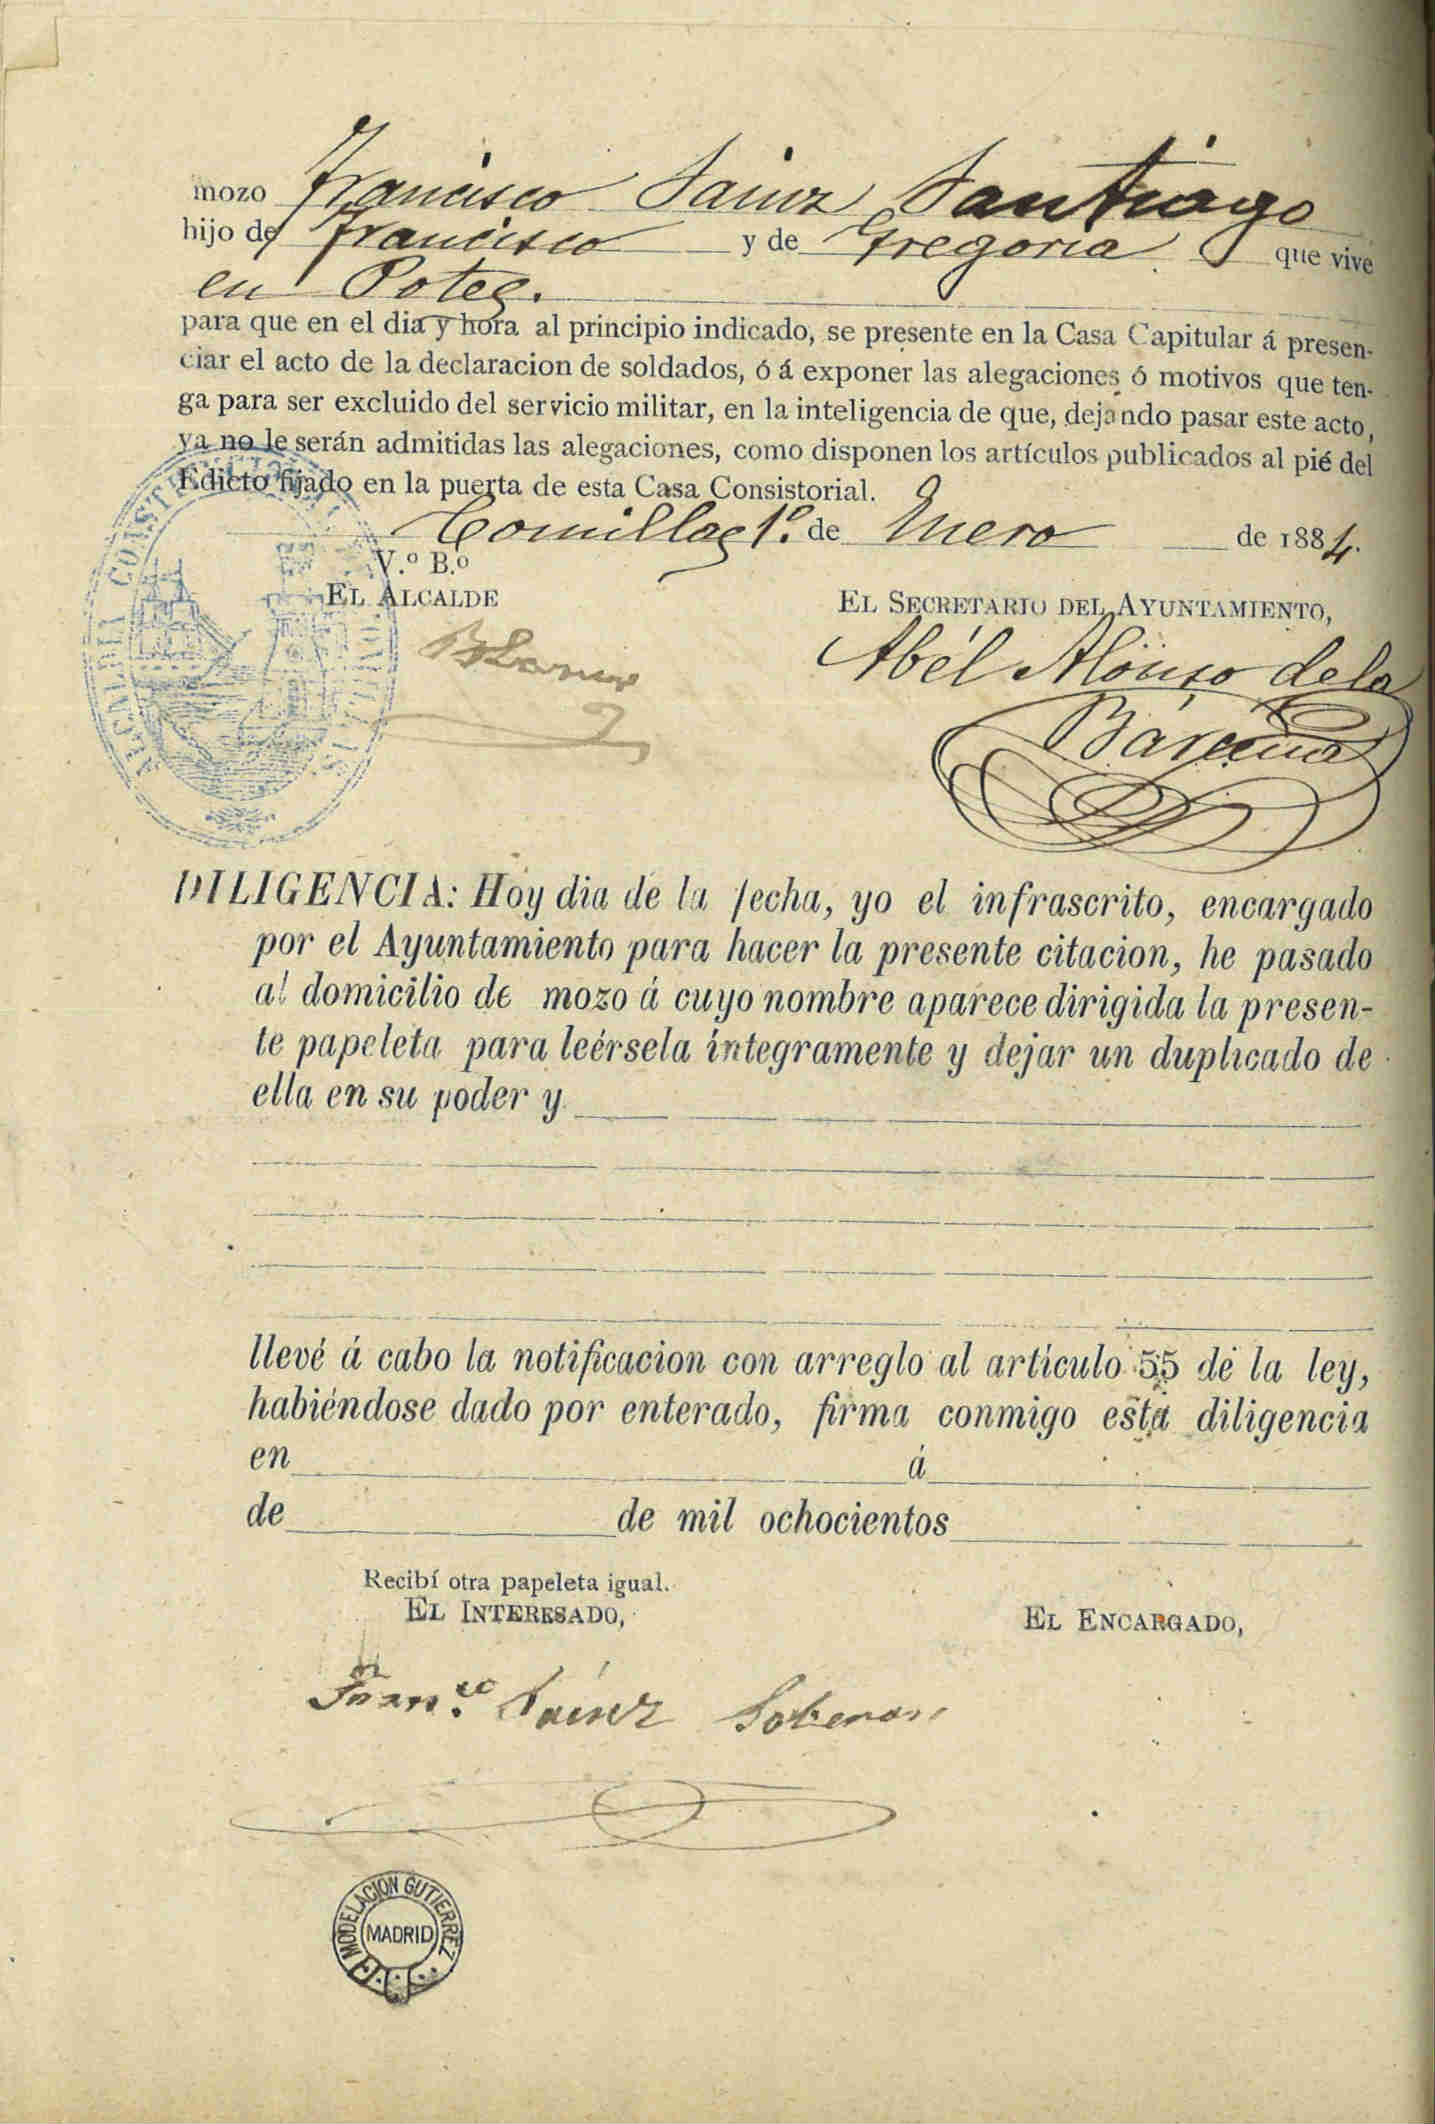 mozo Francisco Sainz Santiago
hijo de Francisco y de Gregoria que vive
en Potes.
para que en el dia y hora al principio indicado, se presente en la Casa Capitular á presen-
ciar el acto de la declaracion de soldados, ó á exponer las alegaciones ó motivos que ten-
ga para ser excluido del servicio militar, en la inteligencia de que, dejando pasar este acto,
ya no le serán admitidas las alegaciones, como disponen los artículos publicados al pié del
Edicto fijado en la puerta de esta Casa Consistorial.
Comillas 1º. de Enero de 1884.
V.º B.º
EL ALCALDE
EL SECRETARIO DEL AYUNTAMIENTO,
Abél Alonso de la
Bárcena
ALCALDIA CONST
DILIGENCIA: Hoy dia de la fecha, yo el infrascrito, encargado
por el Ayuntamiento para hacer la presente citacion, he pasado
al domicilio de mozo á cuyo nombre aparece dirigida la presen-
te papeleta para leérsela íntegramente y dejar un duplicado de
ella en su poder y
llevé á cabo la notificacion con arreglo al artículo 55 de la ley,
habiéndose dado por enterado, firma conmigo esta diligencia
en á
de de mil ochocientos
Recibí otra papeleta igual.
EL INTERESADO,
EL ENCARGADO,
Fran.co Saínz Soberon
MODELACION GUTIERREZ
MADRID